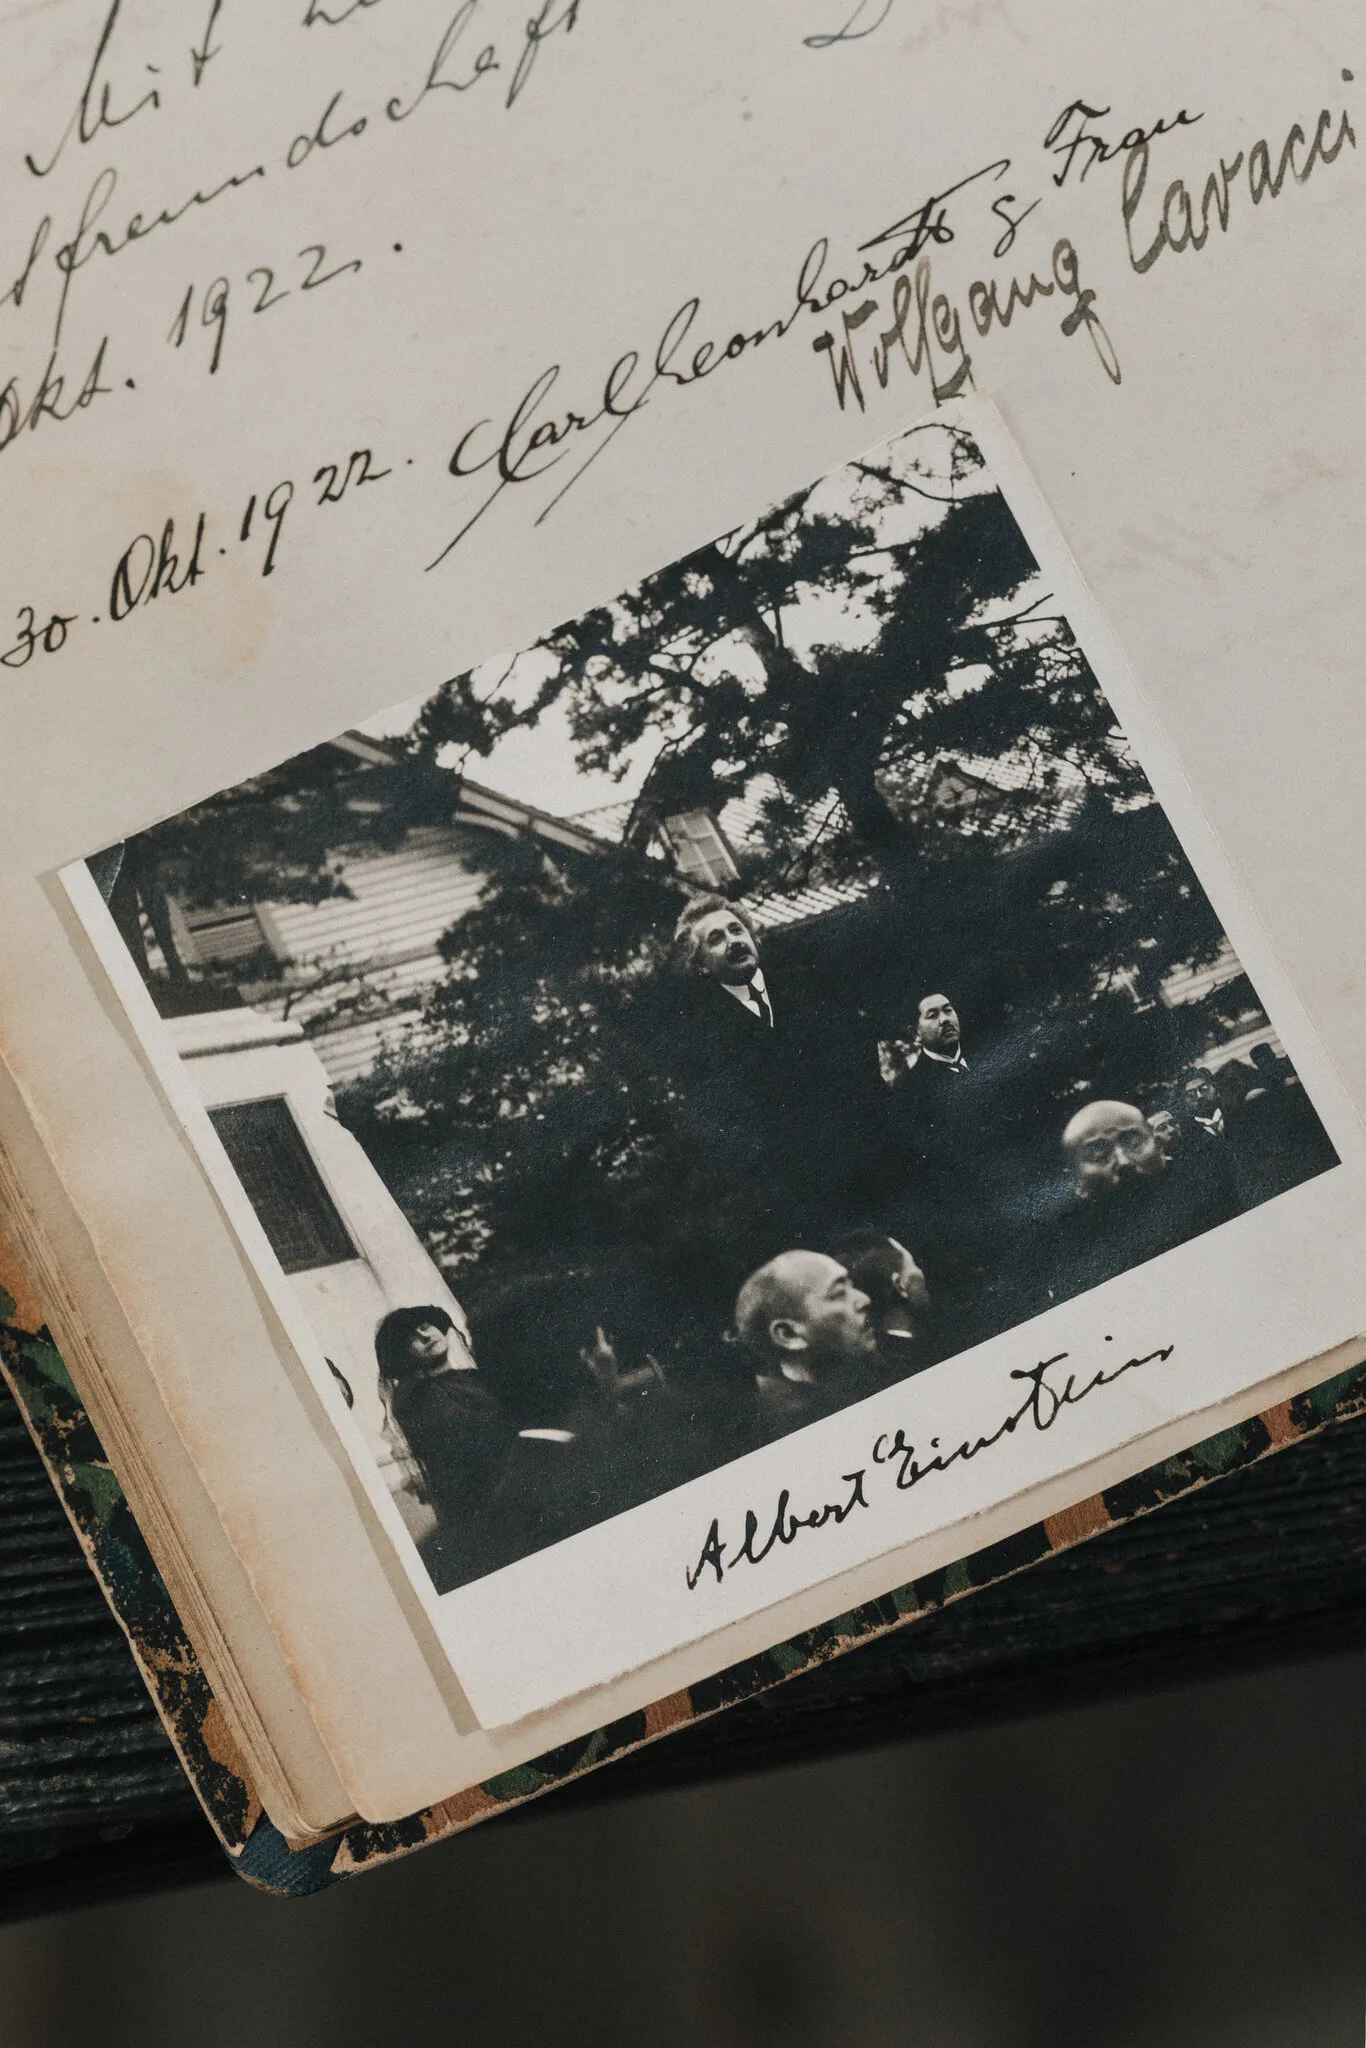 Mit
freundschaft
Okt. 1922.
30. Okt. 1922. Carl Leonhardt & Frau
Wolfgang Cavacci
Albert Einstein